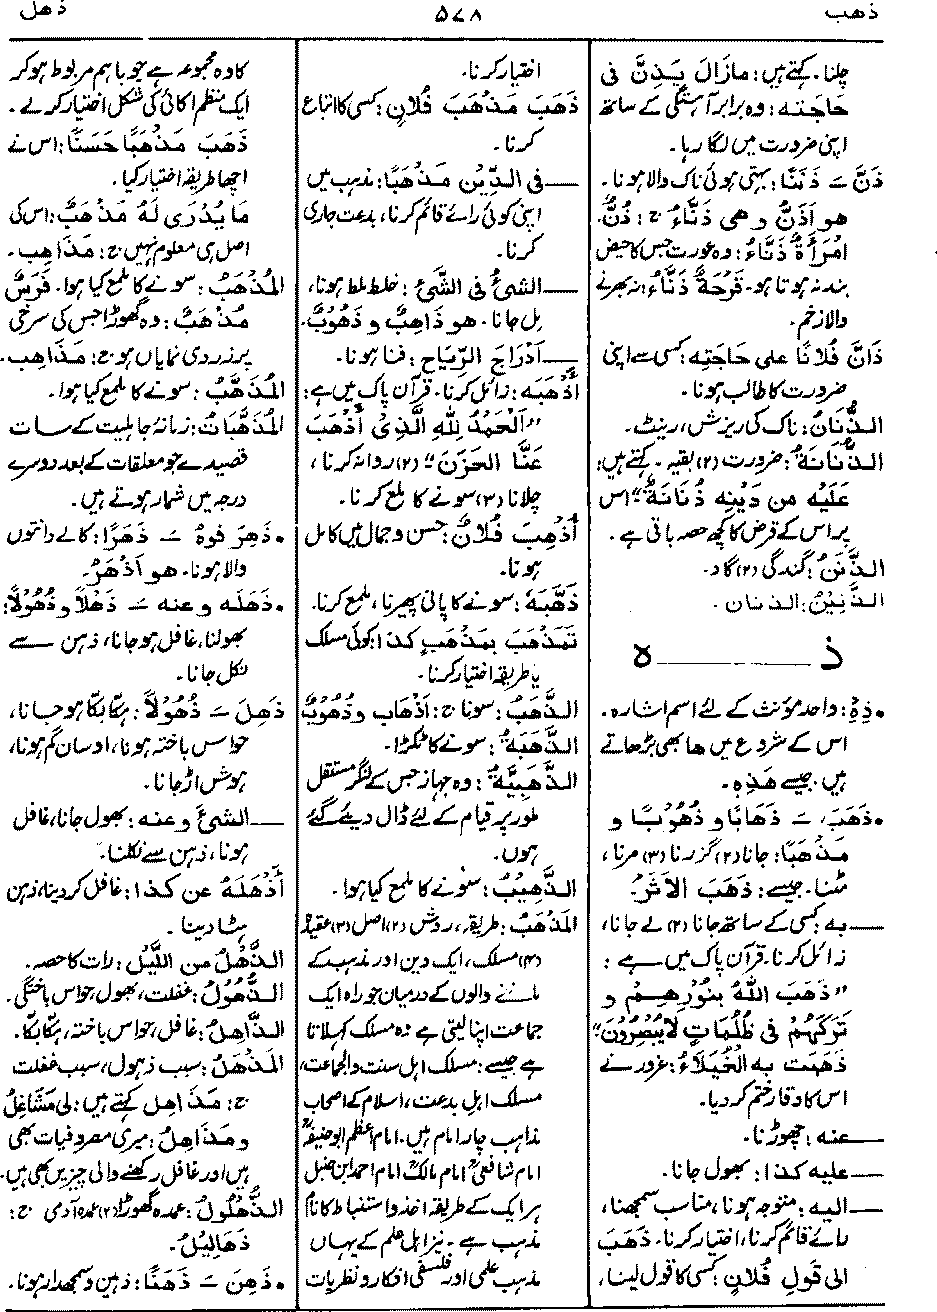 ذهب
۵۷۸
ذهل
چلنا۔ کہتے ہیں: مازَالَ يَذِنُّ فی
حَاجَتِه: وہ برابر آہستگی کے ساتھ
اپنی ضرورت میں لگا رہا۔
ذَنَّ ــَ ذَنَنًا: بہتی ہوئی ناک والا ہونا۔
هو اَذَنُّ و هی ذَنَّاءُ ج: ذُنٌّ۔
امْرَأَةٌ ذَنَّاءُ: وہ عورت جس کا حیض
بند نہ ہوتا ہو۔ قُرْحَةٌ ذَنَّاءُ: نہ بھرنے
والا زخم۔
ذَانَّ فُلَانًا علی حَاجَتِه: کسی سے اپنی
ضرورت کا طالب ہونا۔
الذُّنَانُ: ناک کی ریزش، رینٹ۔
الذُّنَانَةُ: ضرورت (۲) بقیہ۔ کہتے ہیں:
عَلَيْهِ مِن دَيْنِه ذُنَانَةٌ: اس
پر اس کے قرض کا کچھ حصہ باقی ہے۔
الذَّنَنُ: گندگی (۲) گاد۔
الذَّنِيْنُ: الذنان۔
ذ ـــــــ ہ
• ذِهْ: واحد مؤنث کے لئے اسم اشارہ۔
اس کے شروع میں ها بھی بڑھاتے
ہیں: جیسے هَذِهِ۔
• ذَهَبَ، ــَ ذَهَابًا و ذُهُوْبًا و
مَذْهَبًا: جانا (۲) گزرنا (۳) مرنا،
مٹنا۔ جیسے: ذَهَبَ الاَثَرُ۔
ــــ به: کسی کے ساتھ جانا (۲) لے جانا،
زائل کرنا۔ قرآن پاک میں ہے:
”ذَهَبَ اللّٰهُ بِنُوْرِهِمْ و
تَرَكَهُمْ فِی ظُلُمَاتٍ لَايُبْصِرُوْنَ“
ذَهَبَتْ بِه الْخُيَلَاءُ: غرور نے
اس کا وقار ختم کر دیا۔
ــــ عنه: چھوڑنا۔
ــــ علیه کذا: بھول جانا۔
ــــ الیه: متوجہ ہونا، مناسب سمجھنا،
رائے قائم کرنا، اختیار کرنا۔ ذَهَبَ
الی قَولِ فُلَانٍ: کسی کا قول لینا،
اختیار کرنا۔
ذَهَبَ مَذْهَبَ فُلَانٍ: کسی کا اتباع
کرنا۔
ــــ فی الدِّيْنِ مَذْهَبًا: مذہب میں
اپنی کوئی رائے قائم کرنا، بدعت جاری
کرنا۔
ــــ الشیُٔ فی الشَّیْٔ: خلط ملط ہونا،
مل جانا۔ هو ذَاهِبٌ و ذَهُوْبٌ۔
ــــ اَدْرَاجَ الرِّيَاحِ: فنا ہونا۔
أَذْهَبَه: زائل کرنا۔ قرآن پاک میں ہے:
”اَلْحَمْدُ لِلّٰهِ الَّذِیْ أَذْهَبَ
عَنَّا الحَزَنَ“ (۲) روانہ کرنا،
چلانا (۳) سونے کا ملمع کرنا۔
أُذْهِبَ فُلَانٌ: حسن و جمال میں کامل
ہونا۔
ذَهَّبَهُ: سونے کا پانی پھیرنا، ملمع کرنا۔
تَمَذْهَبَ بِمَذْهَبِ کَذَا: کوئی مسلک
یا طریقہ اختیار کرنا۔
الذَّهَبُ: سونا ج: اَذْهَاب وذُهُوْبٌ
الذَّهَبَةُ: سونے کا ٹکڑا۔
الذَّهَبِيَّةُ: وہ جہاز جس کے لنگر مستقل
طور پر قیام کے لئے ڈال دیئے گئے
ہوں۔
الذَّهِيْبُ: سونے کا ملمع کیا ہوا۔
المَذْهَبُ: طریقہ، روش (۲) اصل (۳) عقیدہ
(۴) مسلک، ایک دین اور مذہب کے
ماننے والوں کے درمیان جو راہ ایک
جماعت اپنا لیتی ہے وہ مسلک کہلاتا
ہے جیسے: مسلک اہل سنت والجماعت،
مسلک اہل بدعت، اسلام کے اصحاب
مذاہب چار امام ہیں۔ امام اعظم ابو حنیفہؒ
امام شافعیؒ امام مالکؒ امام احمد ابن حنبل
ہر ایک کے طریقہ اخذ و استنباط کا نام
مذہب ہے۔ نیز اہل علم کے یہاں
مذہب علمی اور فلسفی افکار و نظریات
کا وہ مجموعہ ہے جو باہم مربوط ہو کر
ایک منظم اکائی کی شکل اختیار کرلے۔
ذَهَبَ مَذْهَبًا حَسَنًا: اس نے
اچھا طریقہ اختیار کیا۔
مَا يُدْرَی لَهُ مَذْهَبٌ: اس کی
اصل ہی معلوم نہیں ج: مَذَاهِب۔
المُذْهَبُ: سونے کا ملمع کیا ہوا۔ فَرَسٌ
مُذْهَبٌ: وہ گھوڑا جس کی سرخی
پر زردی نمایاں ہو ج: مَذَاهِب۔
المُذَهَّبُ: سونے کا ملمع کیا ہوا۔
المُذَهَّبَاتُ: زمانہ جاہلیت کے سات
قصیدے جو معلقات کے بعد دوسرے
درجہ میں شمار ہوتے ہیں۔
• ذَهِرَ فُوهُ ــَ ذَهَرًا: کالے دانتوں
والا ہونا۔ هو اَذْهَرُ۔
• ذَهَلَه و عنه ــَ ذَهْلًا و ذُهُولًا:
بھولنا، غافل ہو جانا، ذہن سے
نکل جانا۔
ذَهِلَ ــَ ذُهُوْلًا: ہکا بکا ہو جانا،
حواس باختہ ہونا، اوسان گم ہونا،
ہوش اڑ جانا۔
ــــ الشیَٔ و عنه: بھول جانا، غافل
ہونا، ذہن سے نکلنا۔
أَذْهَلَهُ عن کذا: غافل کر دینا، ذہن
ہٹا دینا۔
الذَّهْلُ من اللَّیْل: رات کا حصہ۔
الذُّهُوْلُ: غفلت، بھول، حواس باختگی۔
الذَّاهِلُ: غافل، حواس باختہ، ہکا بکا۔
المَذْهَلُ: سبب ذہول، سبب غفلت
ج: مَذَاهِل کہتے ہیں: لِی مَشَاغِلُ
و مَذَاهِلُ: میری مصروفیات بھی
ہیں اور غافل رکھنے والی چیزیں بھی ہیں۔
الذُّهْلُولُ: عمدہ گھوڑا (۲) عمدہ آدمی ج:
ذَهَالِيْلُ۔
• ذَهِنَ ــَ ذَهَنًا: ذہین و سمجھدار ہونا۔